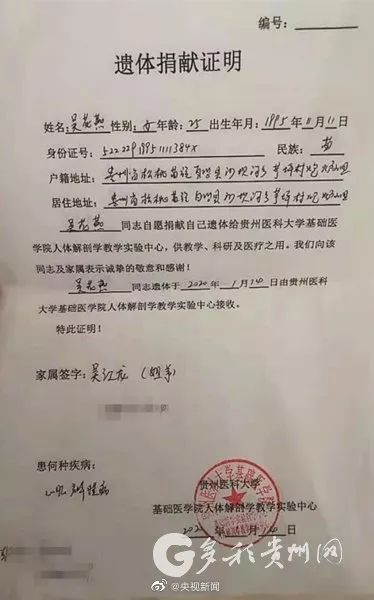 编号：
遗体捐献证明
姓名：吴花燕 性别：女 年龄：25 出生年月：1995年11月11日
身份证号：民族：苗
户籍地址：贵州省松桃苗
居住地址：贵州省松桃苗
吴花燕 同志自愿捐献自己遗体给贵州医科大学基础医
学院人体解剖学教学实验中心，供教学、科研及医疗之用。我们向该
同志及家属表示诚挚的敬意和感谢！
吴花燕 同志遗体于 2020 年 1 月 14 日由贵州医科
大学基础医学院人体解剖学教学实验中心接收。
特此证明！
家属签字：吴江龙（姐弟）
患何种疾病：
贵州医科大学
基础医学院人体解剖学教学实验中心
年 月 日
多彩贵州网
@央视新闻